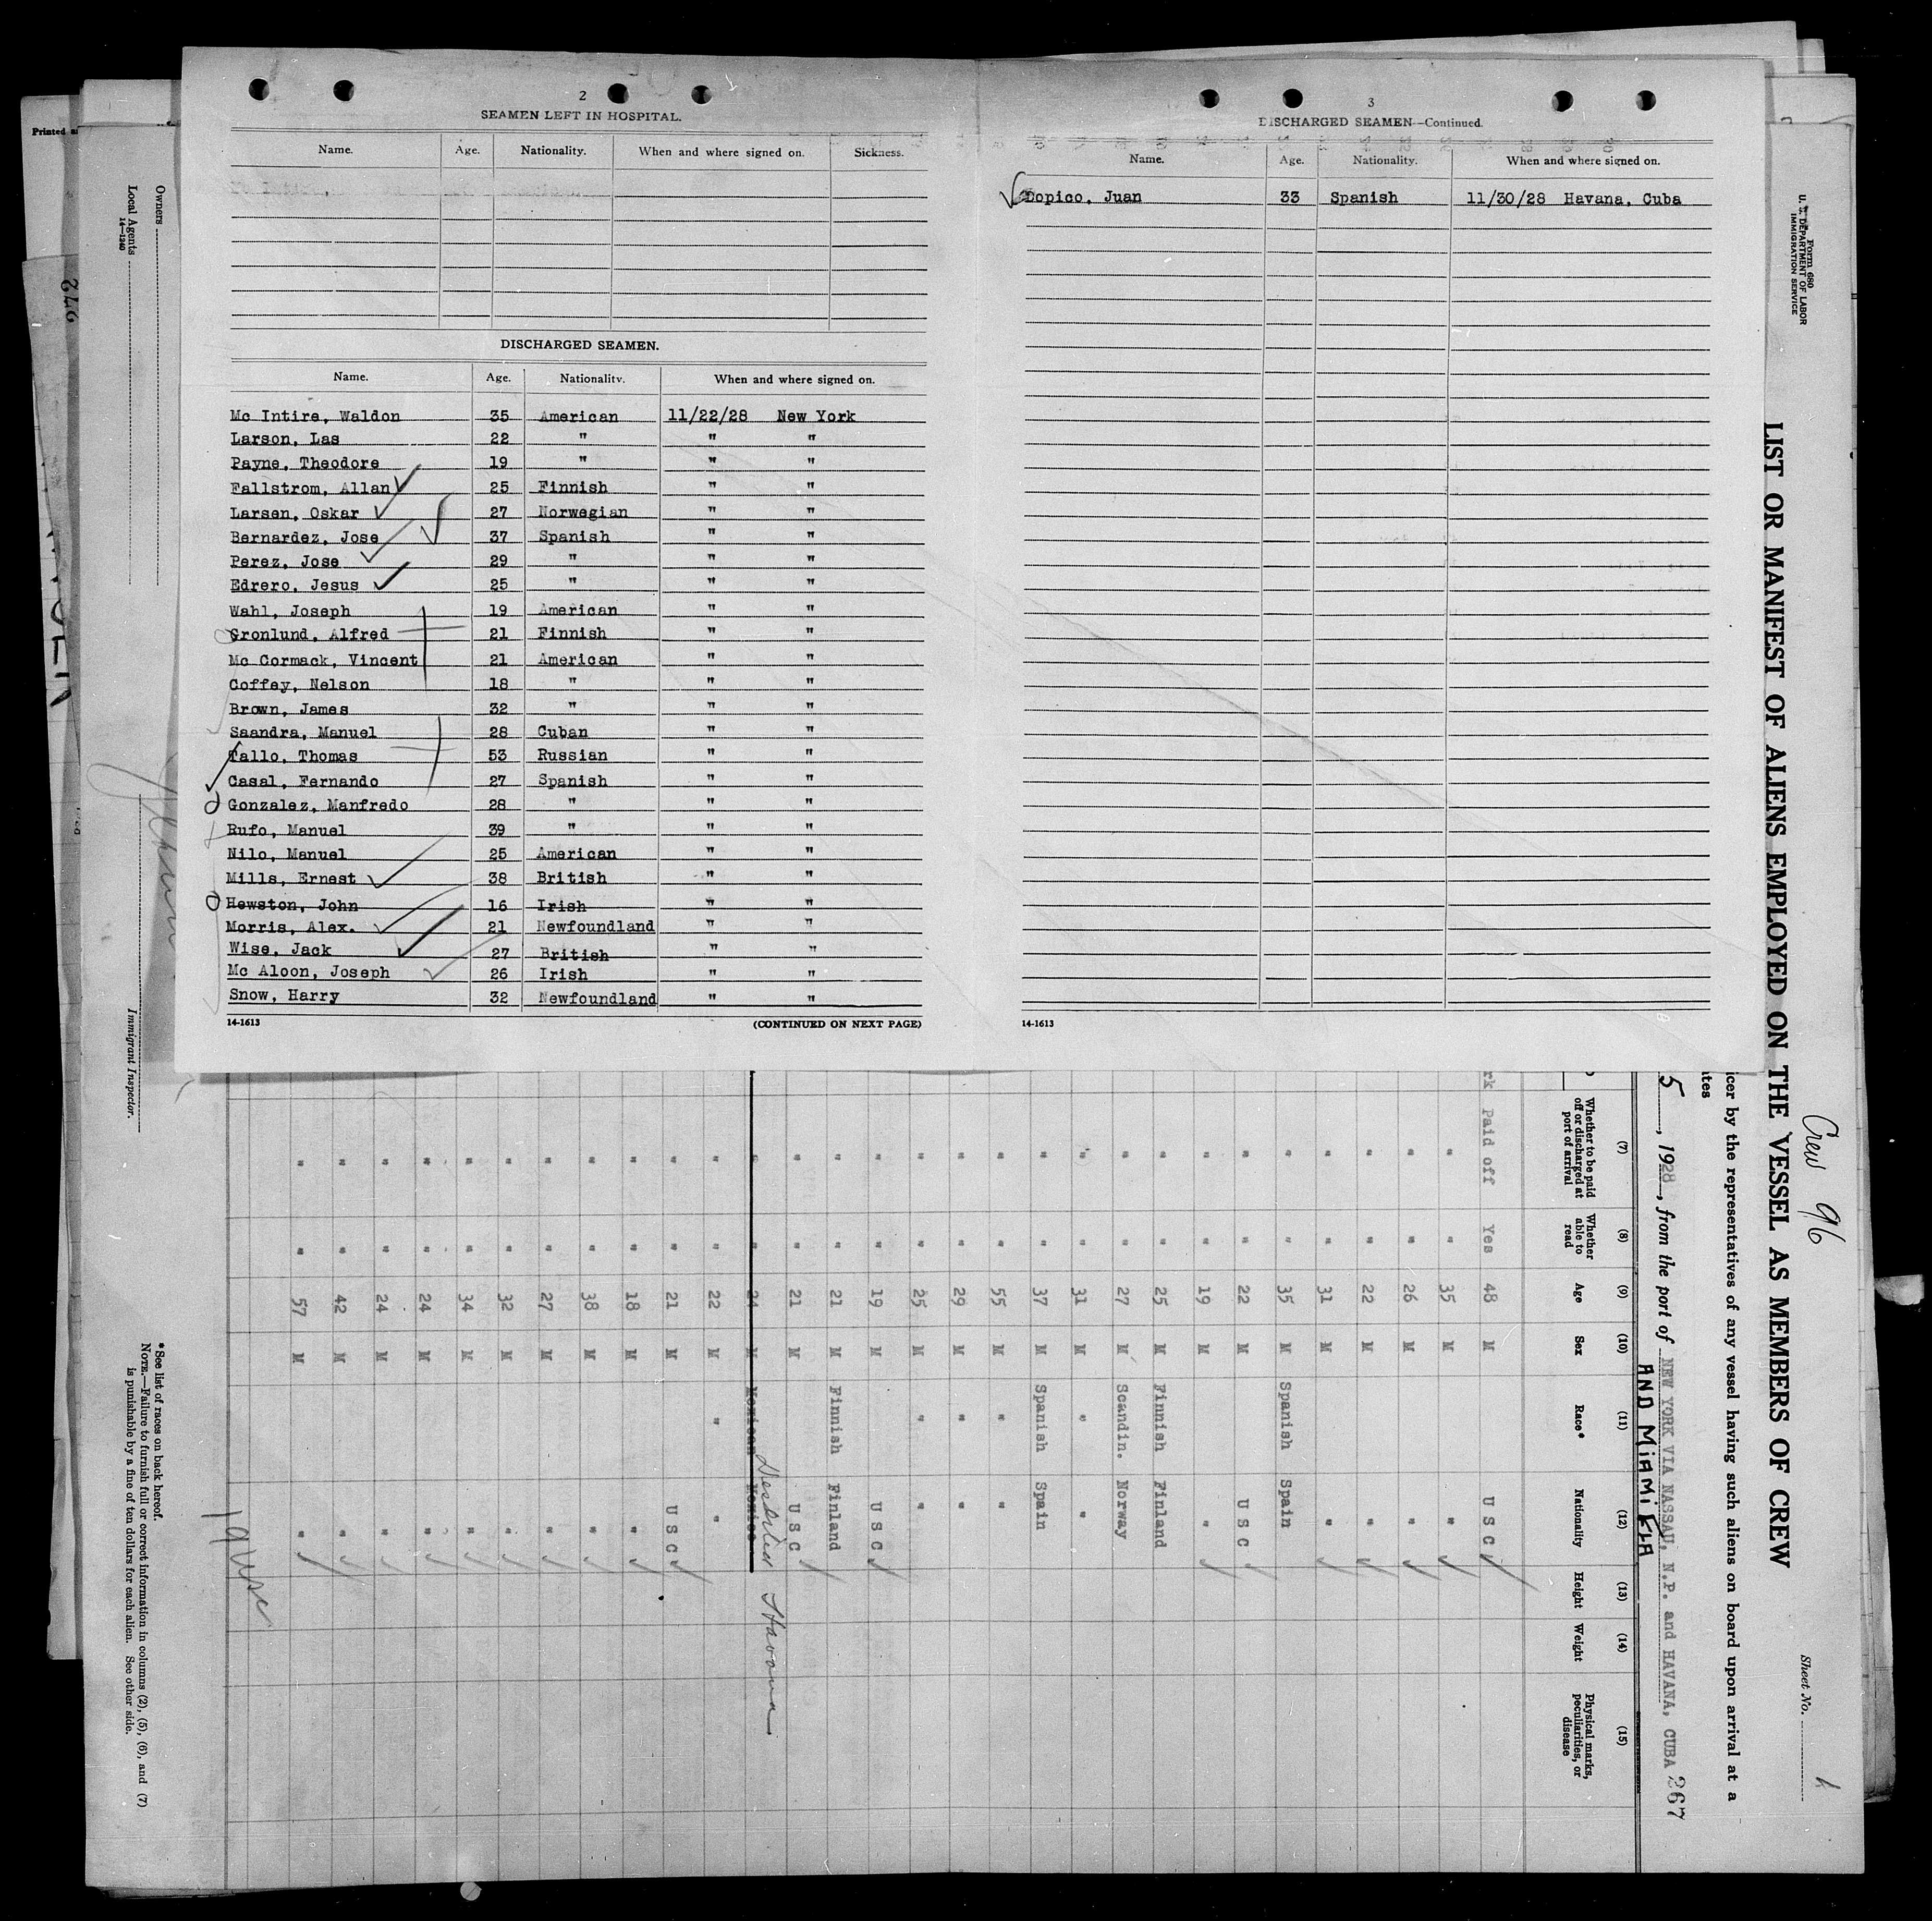 2
SEAMEN LEFT IN HOSPITAL.
Name. Age. Nationality. When and where signed on. Sickness.
DISCHARGED SEAMEN.
Name. Age. Nationality. When and where signed on.
Mc Intire, Waldon 35 American 11/22/28 New York
Larson, Las 22 " " "
Payne, Theodore 19 " " "
Fallstrom, Allan 25 Finnish " "
Larsen, Oskar 27 Norwegian " "
Bernardez, Jose 37 Spanish " "
Perez, Jose 29 " " "
Edrero, Jesus 25 " " "
Wahl, Joseph 19 American " "
Gronlund, Alfred 21 Finnish " "
Mc Cormack, Vincent 21 American " "
Coffey, Nelson 18 " " "
Brown, James 32 " " "
Saandra, Manuel 28 Cuban " "
Tallo, Thomas 53 Russian " "
Casal, Fernando 27 Spanish " "
Gonzalez, Manfredo 28 " " "
Rufo, Manuel 39 " " "
Nilo, Manuel 25 American " "
Mills, Ernest 38 British " "
Hewston, John 16 Irish " "
Morris, Alex. 21 Newfoundland " "
Wise, Jack 27 British " "
Mc Aloon, Joseph 26 Irish " "
Snow, Harry 32 Newfoundland " "
14-1613 (CONTINUED ON NEXT PAGE)
3
DISCHARGED SEAMEN—Continued.
Name. Age. Nationality. When and where signed on.
Dopico, Juan 33 Spanish 11/30/28 Havana, Cuba
14-1613
Form 680
U. S. DEPARTMENT OF LABOR
IMMIGRATION SERVICE
LIST OR MANIFEST OF ALIENS EMPLOYED ON THE VESSEL AS MEMBERS OF CREW
Crew 96
Sheet No. 1
icer by the representatives of any vessel having such aliens on board upon arrival at a
ates
5, 1928, from the port of NEW YORK VIA NASSAU, N.P. and HAVANA, CUBA 267
AND MIAMI FLA
(7) (8) (9) (10) (11) (12) (13) (14) (15)
Whether to be paid off or discharged at port of arrival
Whether able to read
Age
Sex
Race*
Nationality
Height
Weight
Physical marks, peculiarities, or disease
rk Paid off Yes 48 M U S C
" " 35 M "
" " 26 M "
" " 22 M "
" " 31 M "
" " 35 M Spanish Spain
" " 22 M U S C
" " 19 M "
" " 25 M Finnish Finland
" " 27 M Scandin. Norway
" " 31 M " "
" " 37 M Spanish Spain
" " 55 M " "
" " 29 M " "
" " 25 M " "
" " 19 M U S C
" " 21 M Finnish Finland
" " 21 M U S C
" " 24 M Mexican Mexico
Deserted Havana
" " 22 M " "
" " 21 M U S C
" " 18 M "
" " 38 M "
" " 27 M "
" " 32 M "
" " 34 M "
" " 24 M "
" " 24 M "
" " 42 M "
" " 57 M "
19 usc
*See list of races on back hereof.
NOTE.—Failure to furnish full or correct information in columns (2), (5), (6), and (7)
is punishable by a fine of ten dollars for each alien. See other side.
Immigrant Inspector.
Owners
Local Agents
14-1240
Printed